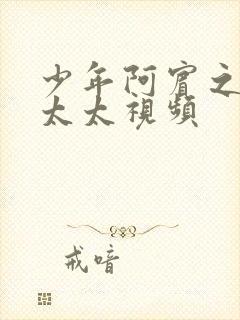 少年阿賓之
太太視頻
戒喑